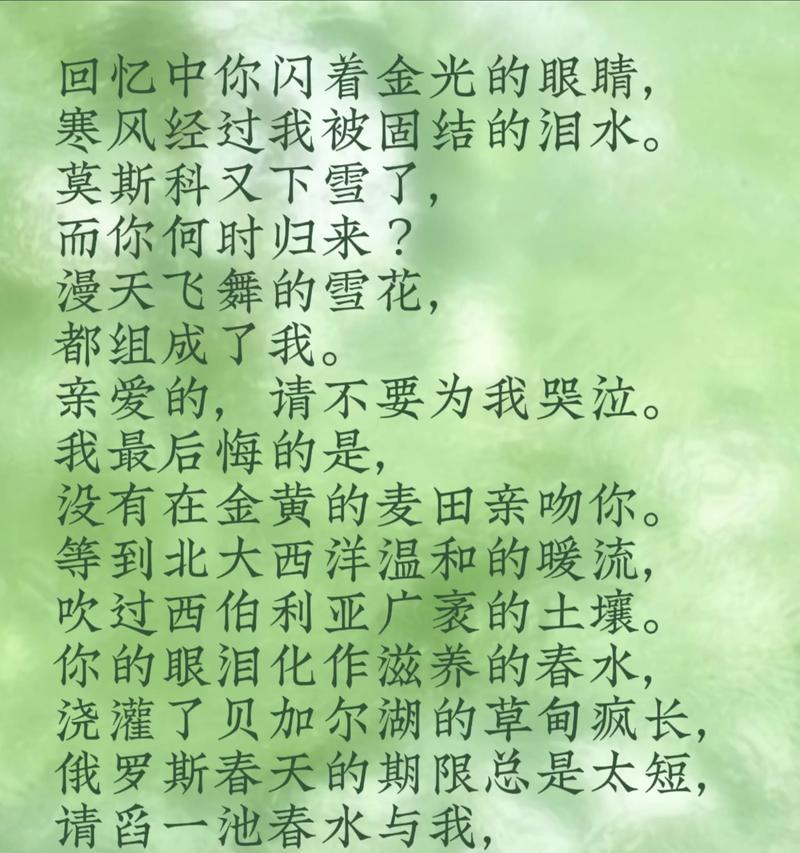 回忆中你闪着金光的眼睛，
寒风经过我被固结的泪水。
莫斯科又下雪了，
而你何时归来？
漫天飞舞的雪花，
都组成了我。
亲爱的，请不要为我哭泣。
我最后悔的是，
没有在金黄的麦田亲吻你。
等到北大西洋温和的暖流，
吹过西伯利亚广袤的土壤。
你的眼泪化作滋养的春水，
浇灌了贝加尔湖的草甸疯长，
俄罗斯春天的期限总是太短，
请舀一池春水与我，